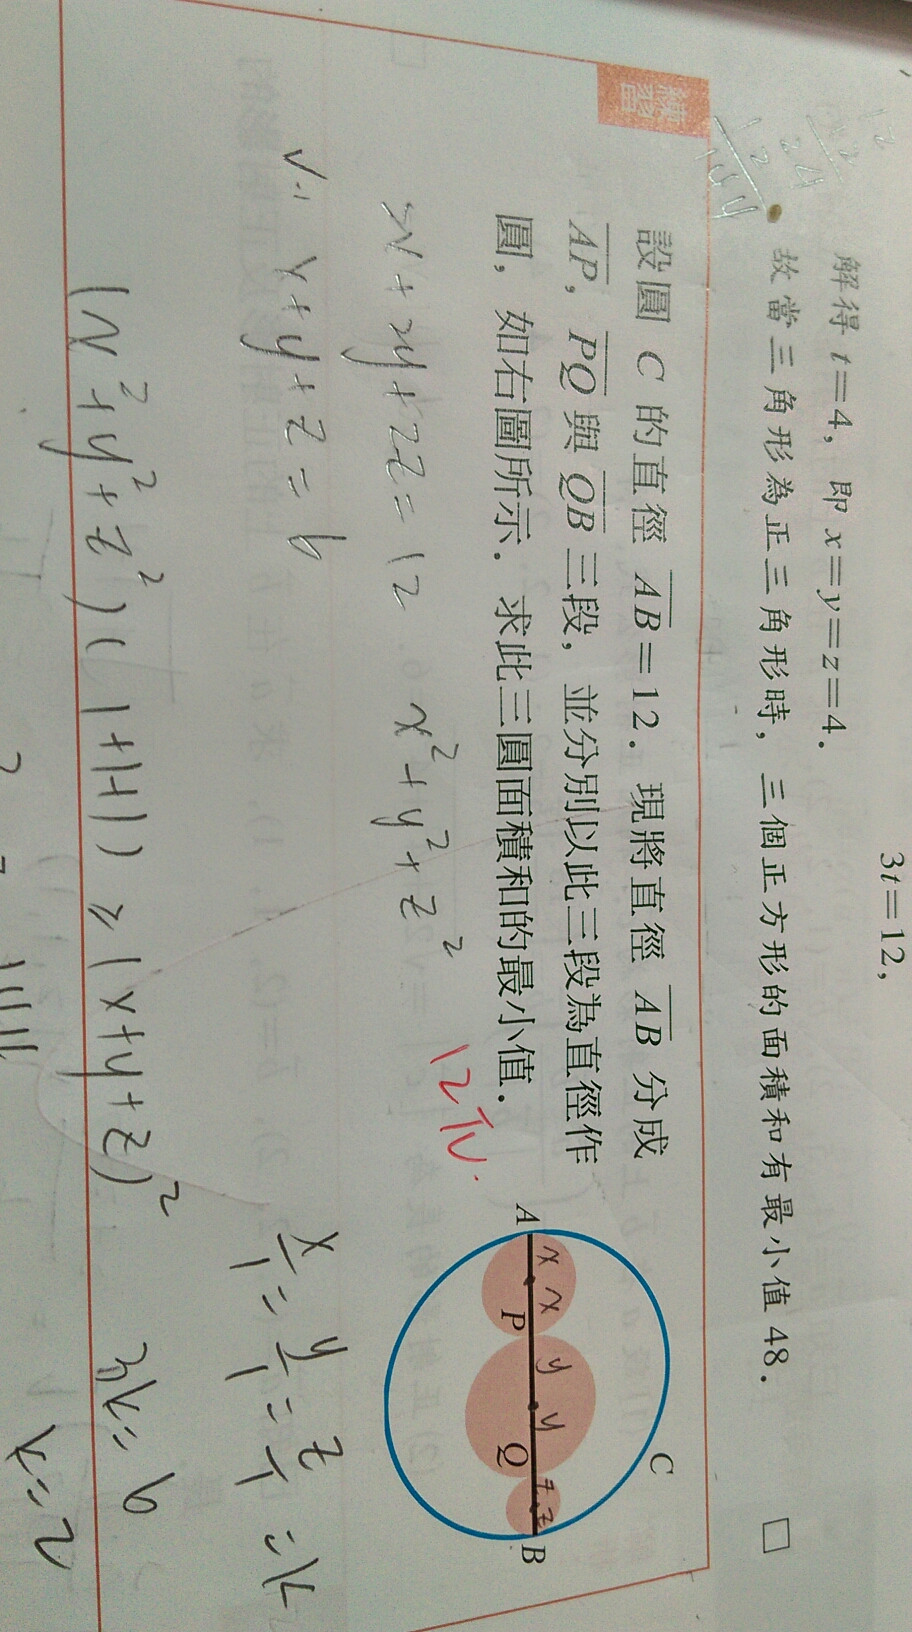 3t=12,
解得 t=4, 即 x=y=z=4.
故當三角形為正三角形時, 三個正方形的面積和有最小值 48. □
練習
設圓 C 的直徑 AB=12. 現將直徑 AB 分成
AP, PQ 與 QB 三段, 並分別以此三段為直徑作
圓, 如右圖所示. 求此三圓面積和的最小值.
12π.
A x x P y y Q z z B
C
+2y+2z=12 x²+y²+z²
x+y+z=6
x/1=y/1=z/1=k
(x²+y²+z²)(1+1+1)≥(x+y+z)²
3k=6
k=2